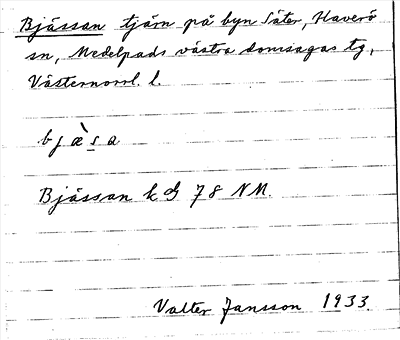 Bjässan tjärn på byn Säter, Haverö
sn, Medelpads västra domsagas tg,
Västernorrl. l.
bjæ̀sa
Bjässan k G 78 NM.
Valter Jansson 1933.